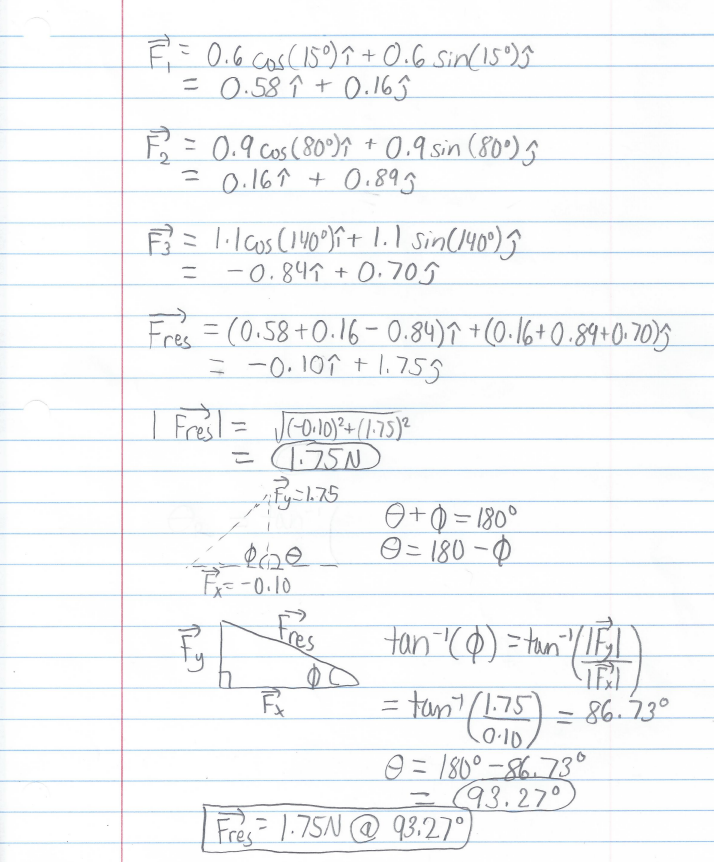 F₁⃗ = 0.6 cos(15°)î + 0.6 sin(15°)ĵ
= 0.58 î + 0.16ĵ
F₂⃗ = 0.9 cos(80°)î + 0.9 sin(80°)ĵ
= 0.16î + 0.89ĵ
F₃⃗ = 1.1cos(140°)î + 1.1 sin(140°)ĵ
= -0.84î + 0.70ĵ
Fres⃗ = (0.58+0.16-0.84)î +(0.16+0.89+0.70)ĵ
= -0.10î + 1.75ĵ
|Fres⃗| = √(-0.10)²+(1.75)²
= 1.75N
Fy⃗=1.75
θ+ϕ=180°
ϕ θ
θ=180-ϕ
Fx⃗=-0.10
Fy⃗ Fres⃗ ϕ Fx⃗
tan⁻¹(ϕ) = tan⁻¹(|Fy⃗|/|Fx⃗|)
= tan⁻¹(1.75/0.10) = 86.73°
θ = 180°-86.73°
= 93.27°
Fres⃗ = 1.75N @ 93.27°